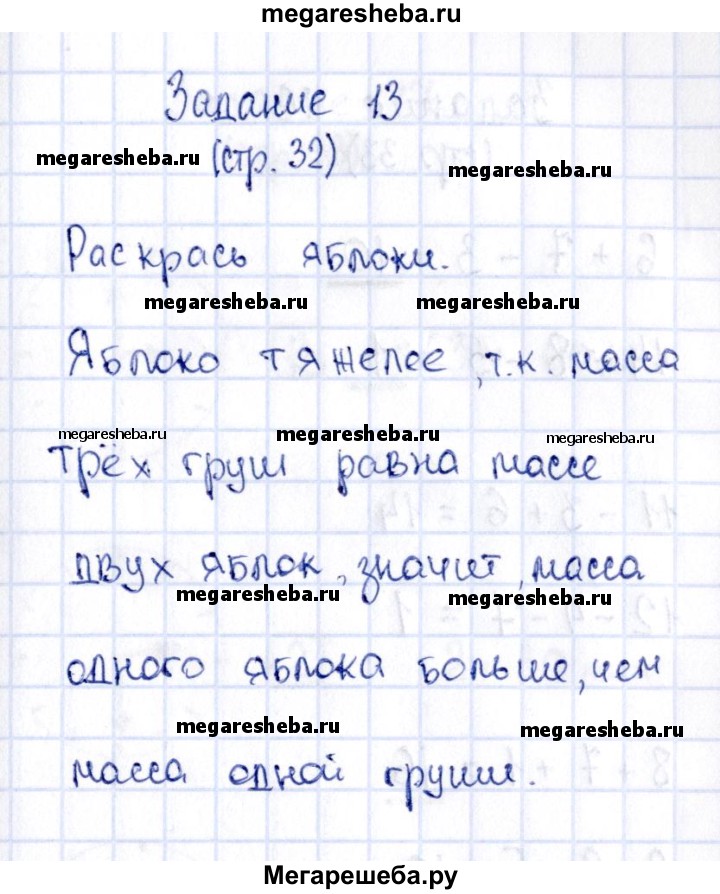 megaresheba.ru
Задание 13
megaresheba.ru (стр. 32) megaresheba.ru
Раскрась яблоки.
megaresheba.ru megaresheba.ru
Яблоко тяжелее, т.к. масса
megaresheba.ru megaresheba.ru megaresheba.ru
трёх груш равна массе
двух яблок, значит, масса
megaresheba.ru megaresheba.ru
одного яблока больше, чем
megaresheba.ru megaresheba.ru
масса одной груши.
Мегарешеба.ру